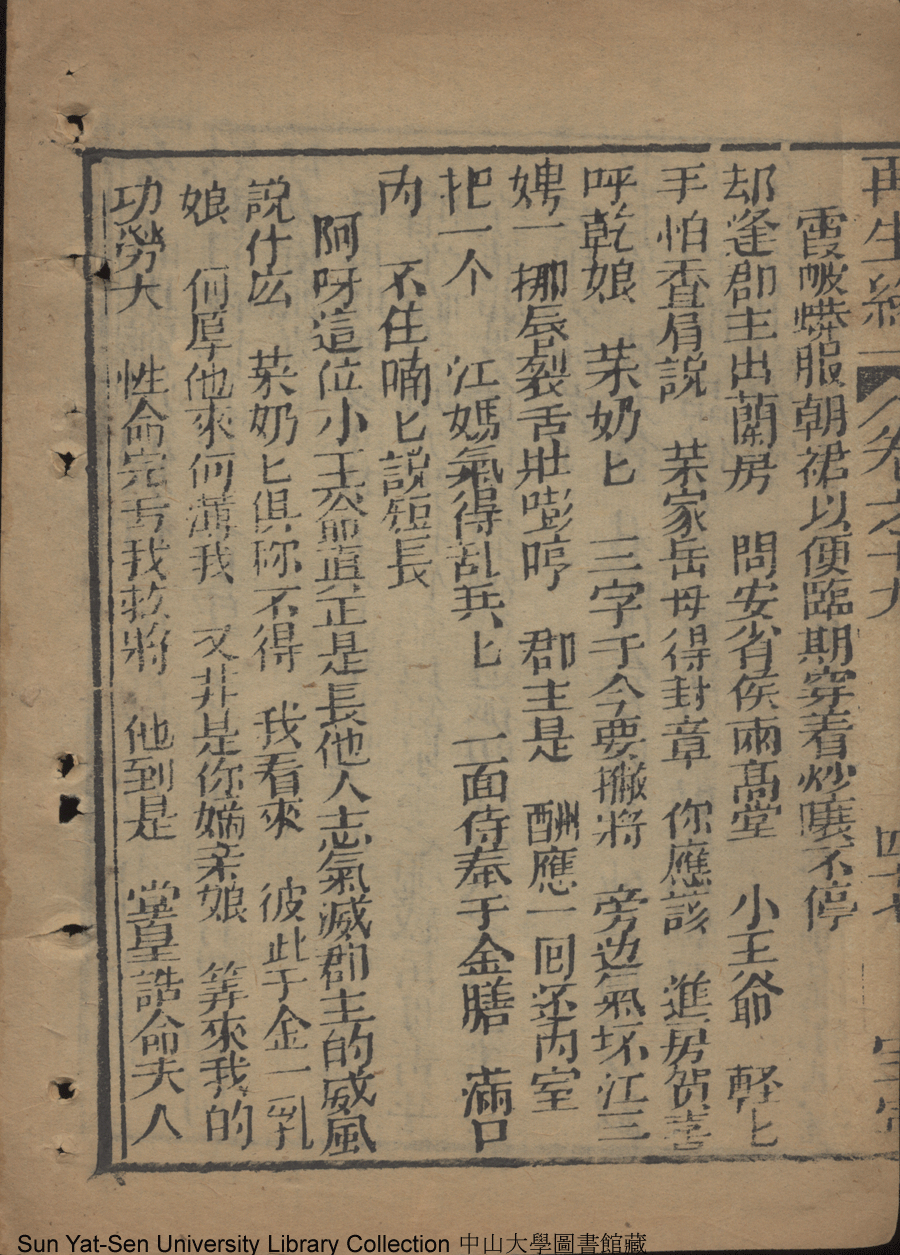 再生緣 卷之十九
霞帔蟒服朝裙以便臨期穿着炒嚷不停
却逢郡主出蘭房 問安省侯兩高堂 小王爺 輕匕
手怕香肩說 茱家岳母得封章 你應該 進房贺喜
呼乾娘 茱奶匕 三字于今要撇將 旁边氣坏江三
娉一挪唇裂舌壯嘭哼 郡主是 酬應一囘还內室
把一个 江媽氣得乱兵匕 一面侍奉于金膳 滿口
內 不住喃匕說短長
阿呀這位小王爺直正是長他人志氣滅郡主的威風
說什庅 茱奶匕俱称不得 我看來 彼此于金一乳
娘 何厚他來何薄我 又非是你嫡柔娘 筭來我的
功勞大 性命完舌我救將 他到是 堂皇誥命夫人
Sun Yat-Sen University Library Collection 中山大學圖書館藏